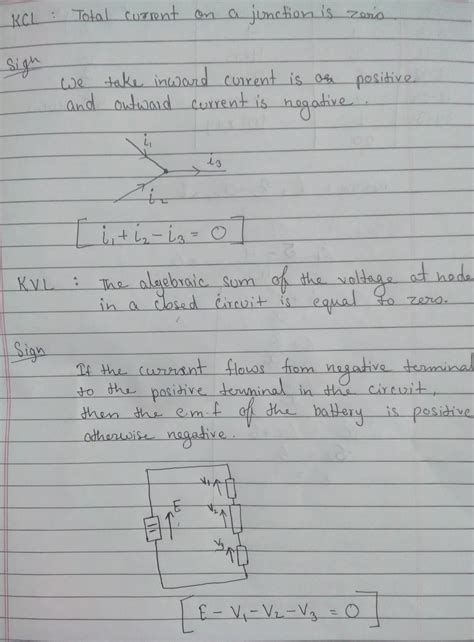 KCL : Total current on a junction is zero.
Sign
We take inward current is as positive
and outward current is negative.
i1
i3
i2
[ i1 + i2 - i3 = 0 ]
KVL : The algebraic sum of the voltage at node
in a closed circuit is equal to zero.
Sign
If the current flows from negative terminal
to the positive terminal in the circuit,
then the e.m.f of the battery is positive
otherwise negative.
V1
E
V2
V3
[ E - V1 - V2 - V3 = 0 ]